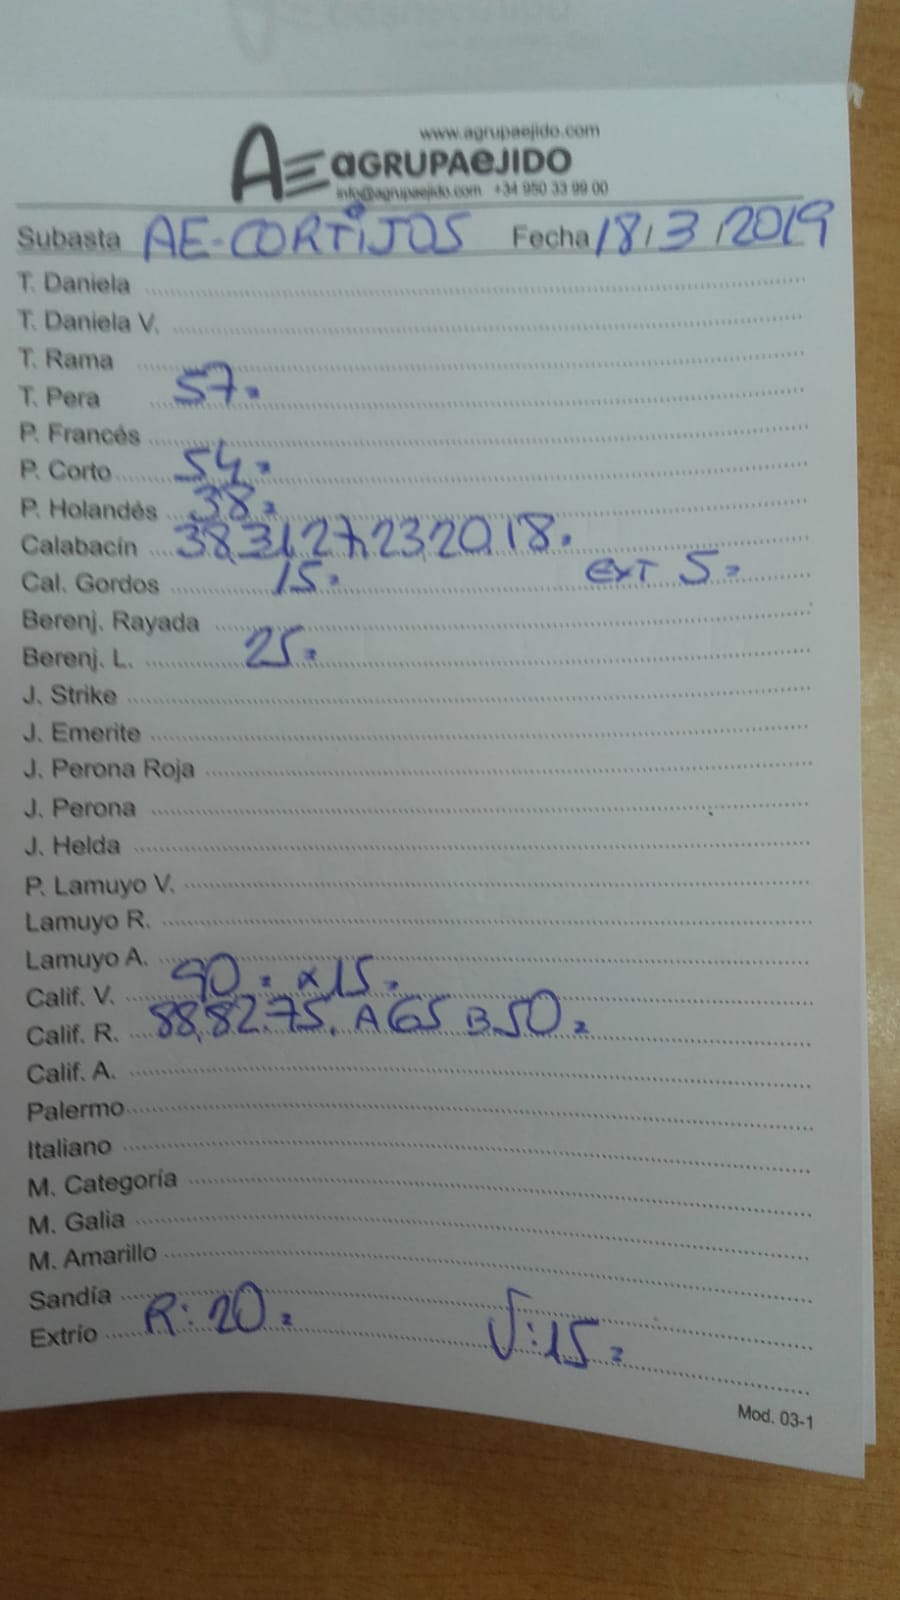 www.agrupaejido.com
AE aGRUPAeJIDO
info@agrupaejido.com +34 950 33 99 00
Subasta AE-CORTIJOS Fecha 18/3/2019
T. Daniela
T. Daniela V.
T. Rama
T. Pera 57=
P. Francés
P. Corto 54=
P. Holandés 38=
Calabacín 38,31,27,23,20,18.
Cal. Gordos 15= EXT 5=
Berenj. Rayada
Berenj. L. 25=
J. Strike
J. Emerite
J. Perona Roja
J. Perona
J. Helda
P. Lamuyo V.
Lamuyo R.
Lamuyo A.
Calif. V. 90= x15=
Calif. R. 88,82.75. A 65 B 50=
Calif. A.
Palermo
Italiano
M. Categoría
M. Galia
M. Amarillo
Sandía
Extrío R: 20= V: 15=
Mod. 03-1